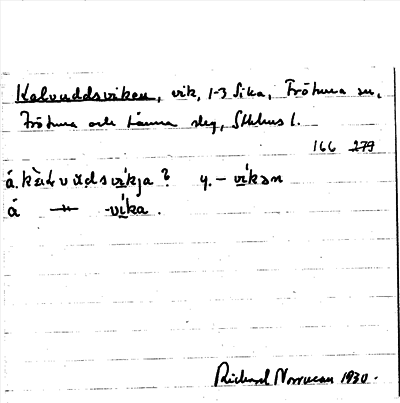 Kalvuddsviken, vik, 1-3 Sika, Frötuna sn,
Frötuna och Länna slg, Sthlms l.
166 279
á. kàlvùdsvíkja? y. – víkən
á –"– -víka.
Richard Norrman 1930.